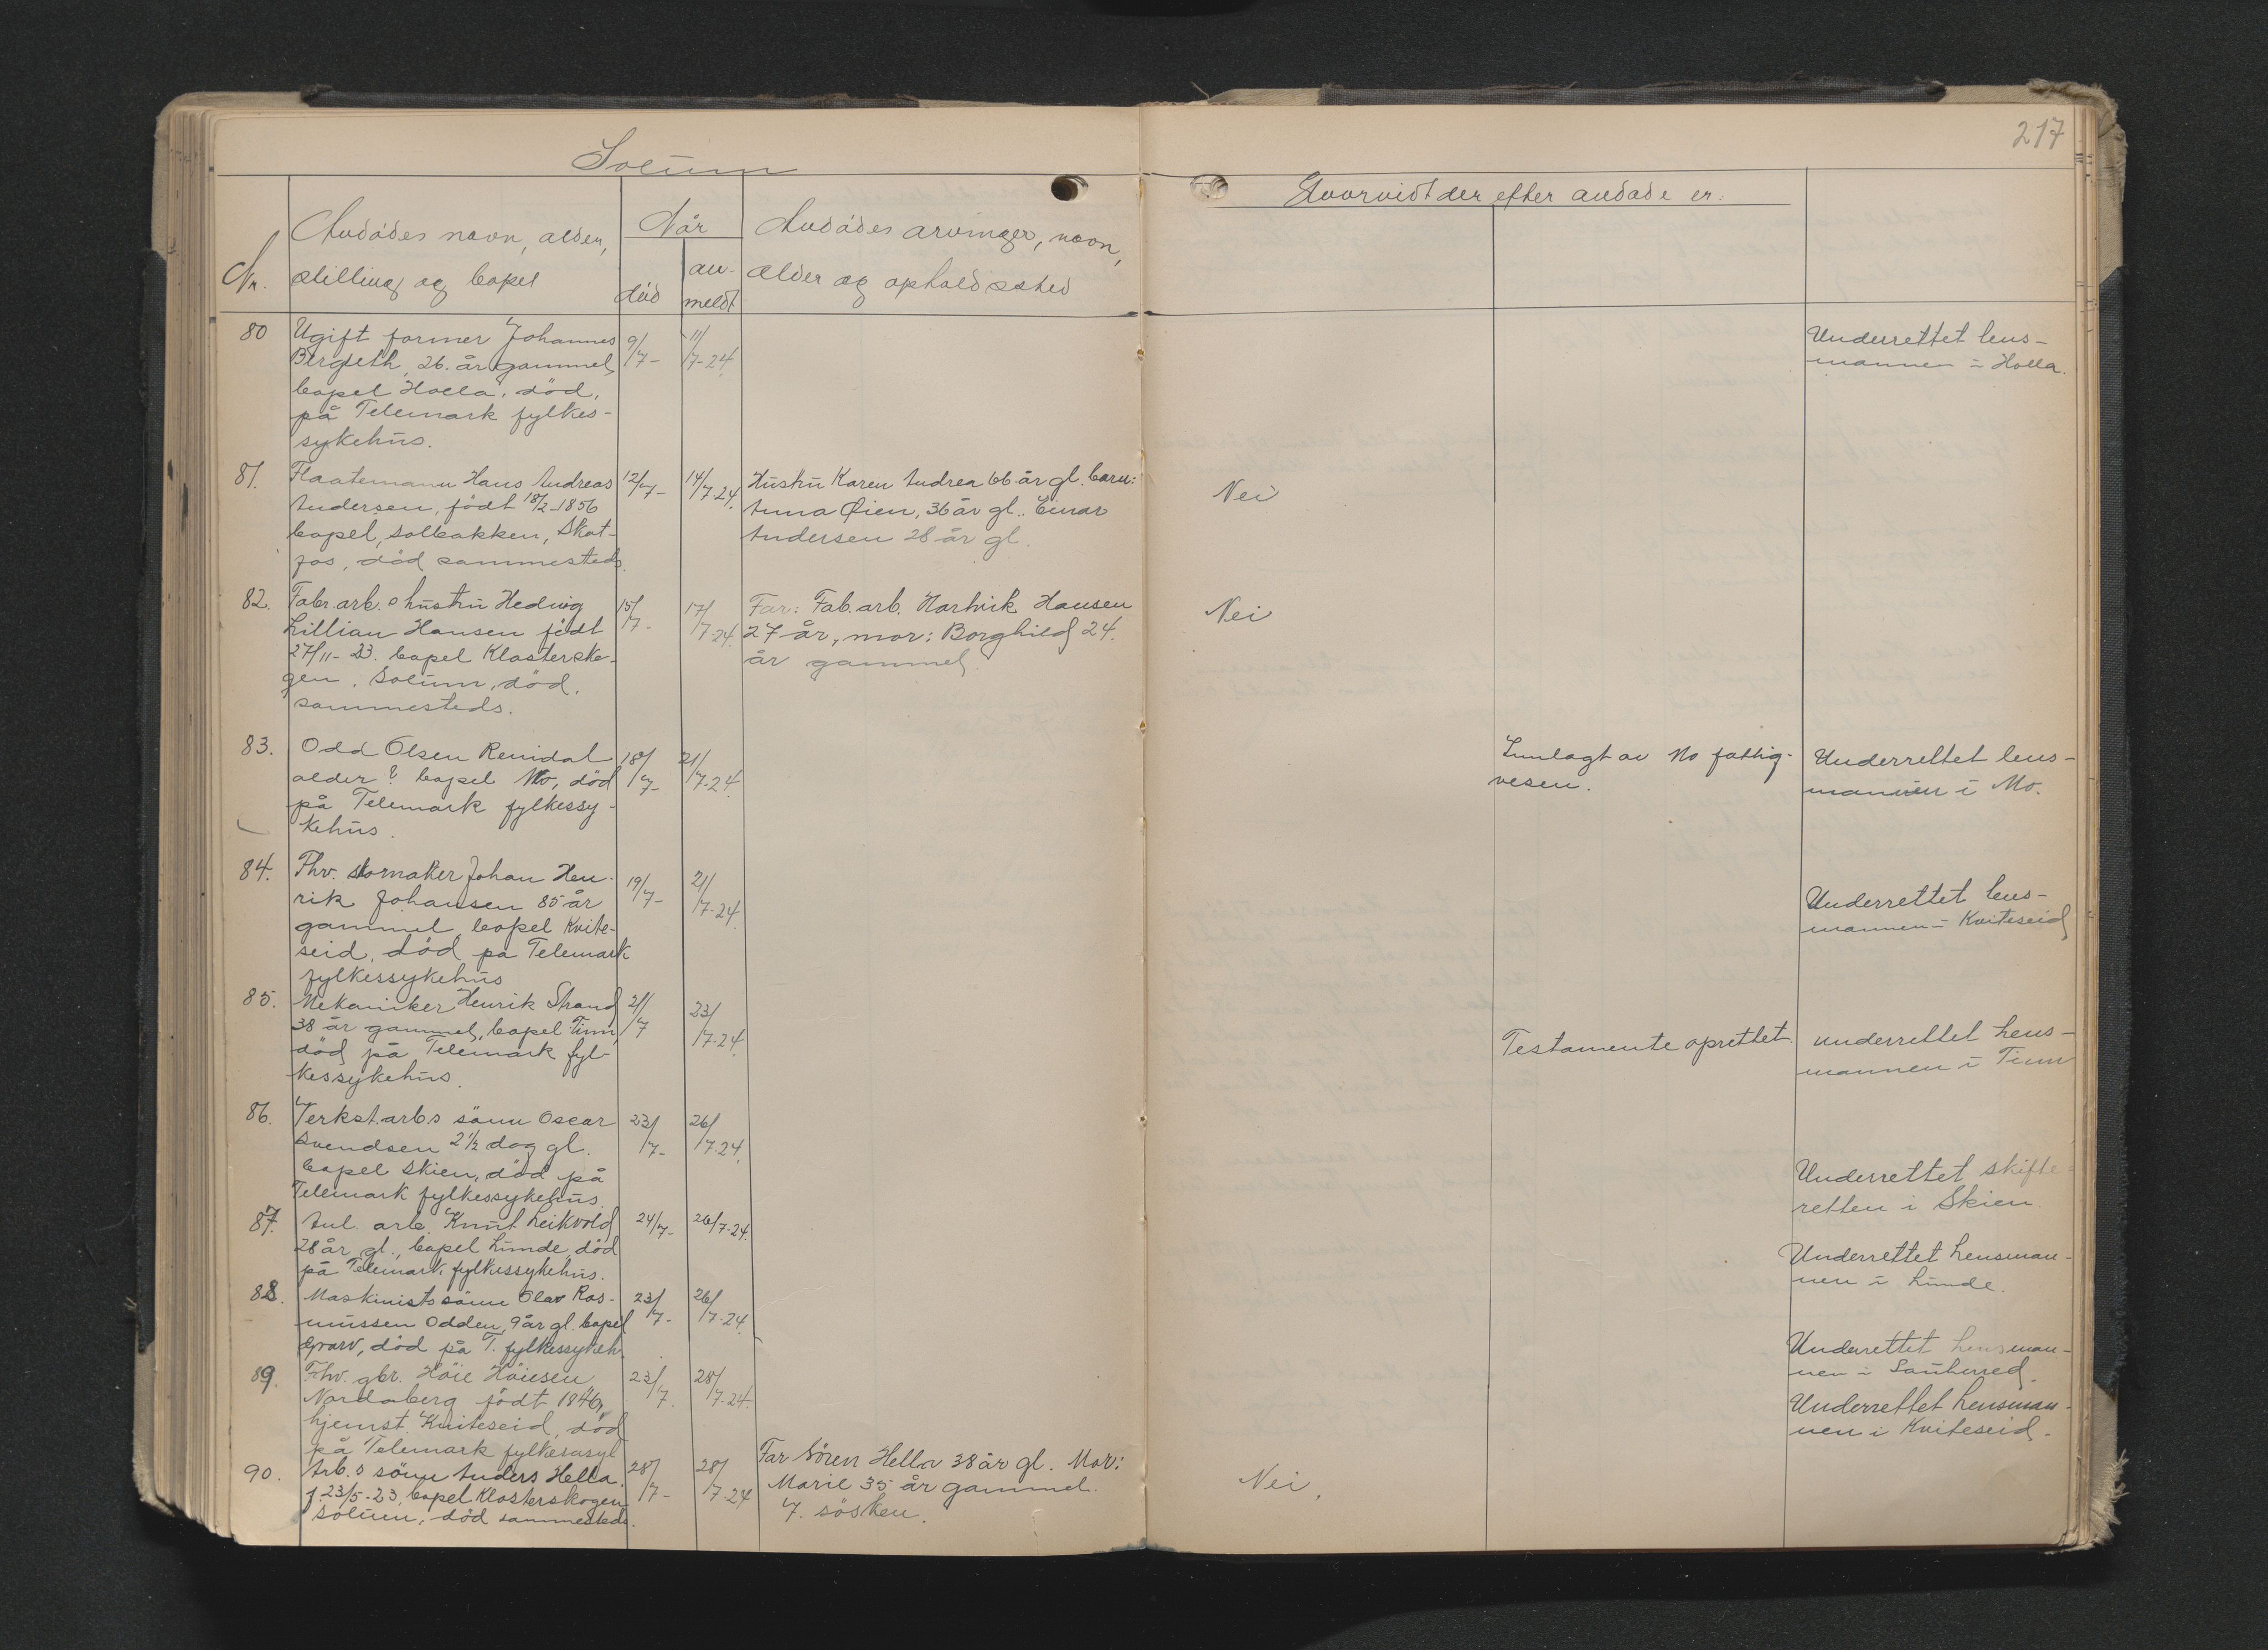 217
Solum
Nr.
Avdødes navn, alder,
stilling og bopel
Når
død
an-
meldt
Avdødes arvinger, navn,
alder og opholdssted
Hvorvidt der efter avdøde er:
80
Ugift former Johannes
Bergseth, 26 år gammel,
bopel Holla, død,
på Telemark fylkes-
sykehus.
9/7-
11/7-24.
Underrettet lens-
mannen i Holla.
81.
Flaatemann Hans Andreas
Andersen, født 18/2-1856
bopel, solbakken, Skot-
fos, død sammesteds.
12/7-
14/7-24.
Hustru Karen Andrea 66 år gl. barn:
Anna Øien, 36 år gl., Einar
Andersen 28 år gl.
Nei
82.
Fabr. arb. s hustru Hedvig
Lillian Hansen født
27/11-23. bopel Klostersko-
gen, Solum, død,
sammesteds.
15/7-
17/7-24.
Far: Fab. arb. Hartvik Hansen
27 år, mor: Borghild 24.
år gammel
Nei
83.
Odd Olsen
alder? bopel Mo, død
på Telemark fylkessy-
kehus.
18/7-
21/7-24.
Innlagt av Mo fattig-
vesen.
Underrettet lens-
mannen i Mo.
84.
Fhv. skomaker Johan Hen-
rik Johansen 85 år
gammel, bopel Kvite-
seid, død på Telemark
fylkessykehus
19/7-
21/7-24.
Underrettet lens-
mannen i Kviteseid
85.
Mekaniker Henrik Strand
38 år gammel, bopel Tinn,
død på Telemark fyl-
kessykehus.
21/7
23/7-24.
Testamente oprettet.
underrettet lens-
mannen i Tinn
86.
Verkst.arb.s sönn Oscar
Svendsen 2 1/2 dag gl.
bopel Skien, död på
Telemark fylkessykehus.
23/7-
26/7-24.
Underrettet skifte-
retten i Skien
87.
Anl. arb. Knut Leikvold
28 år gl., bopel Lunde, död
på Telemark fylkessykehus.
24/7-
26/7-24.
Underrettet lensman-
nen i Lunde.
88.
Maskinists sönn Olav Ras-
mussen Odden, 9 år gl. bopel
Gvarv, död på T. fylkessykeh.
23/7-
26/7-24.
Underrettet lensman-
nen i Sauherred.
89.
Fhv. gbr. Höie Höiesen
Nordaberg født 1846,
hjemst. Kviteseid, död
på Telemark fylkesasyl
23/7.
28/7-24.
Underrettet lensman-
nen i Kviteseid.
90.
Arb.s sönn Anders Hella
f. 23/5-23, bopel Klosterskogen
Solum, död sammesteds.
28/7-
28/7-24
Far Sören Hella 38 år gl. Mor:
Marie 35 år gammel.
7. sösken.
Nei.